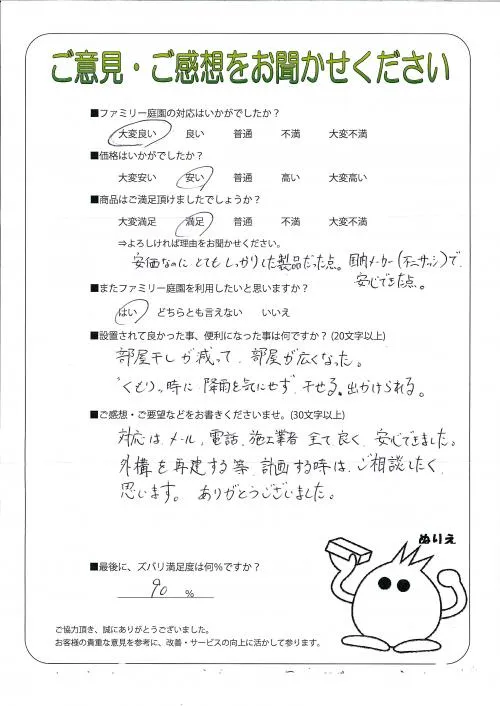 ご意見・ご感想をお聞かせください
■ファミリー庭園の対応はいかがでしたか？
大変良い 良い 普通 不満 大変不満
■価格はいかがでしたか？
大変安い 安い 普通 高い 大変高い
■商品はご満足頂けましたでしょうか？
大変満足 満足 普通 不満 大変不満
⇒よろしければ理由をお聞かせください。
安価なのに とても しっかりした製品だった点。国内メーカー(不二サッシ)で、
安心できた点。
■またファミリー庭園を利用したいと思いますか？
はい どちらとも言えない いいえ
■設置されて良かった事、便利になった事は何ですか？(20文字以上)
部屋干しが減って、部屋が広くなった。
"くもり"時に 降雨を気にせず、干せる。出かけられる。
■ご感想・ご要望などをお書きくださいませ。(30文字以上)
対応は メール, 電話, 施工業者 全て良く、安心できました。
外構を再建する等 計画する時は、ご相談したく、
思います。 ありがとうございました。
ぬりえ
■最後に、ズバリ満足度は何％ですか？
90 %
ご協力頂き、誠にありがとうございました。
お客様の貴重な意見を参考に、改善・サービスの向上に活かして参ります。